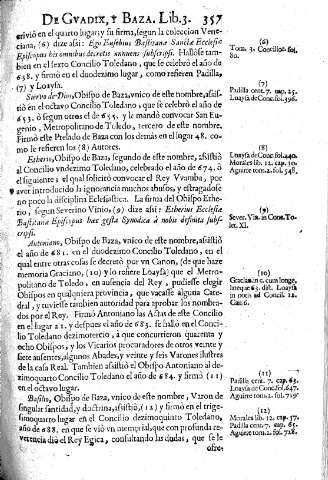 DE GVADIX, Y BAZA. Lib.3. 357
crivió en el quarto lugar; y su firma, segun la coleccion Vene-
ciana, (6) dize assi: Ego Eusebius Bastitana Sanctæ Ecclesiæ
Episcopus his omnibus decretis annuens subscripsi. Hallóse tam-
bien en el sexto Concilio Toledano, que se celebró el año de
638. y firmó en el duodezimo lugar, como refieren Padilla,
(7) y Loaysa.
Siervo de Dios, Obispo de Baza, vnico de este nombre, assis-
tió en el octavo Concilio Toledano, que se celebró el año de
653. ò segun otros de 655. y le mandó convocar San Eu-
genio, Metropolitano de Toledo, tercero de este nombre.
Firmó este Prelado de Baza con los demàs en el lugar 48. co-
mo le refieren los (8) Autores.
Etherio, Obispo de Baza, segundo de este nombre, assistió
al Concilio vndezimo Toledano, celebrado el año de 674. ò
el siguiente: el qual solicitó convocar el Rey Vvamba, por
aver introducido la ignorancia muchos abusos, y estragadose
no poco la disciplina Eclesiastica. La firma del Obispo Ethe-
rio, segun Severino Vinio, (9) dize assi: Etherius Ecclesiæ
Bastitanæ Episcopus hæc gesta Synodica à nobis definita subscripsi.
Antoniano, Obispo de Baza, vnico de este nombre, assistió
el año de 681. en el duodezimo Concilio Toledano, en el
qual entre otras cosas se decretó vn Canon, (de que haze
memoria Graciano, (10) y lo refiere Loaysa) que el Metro-
politano de Toledo, en ausencia del Rey, pudiesse elegir
Obispos en qualquiera provincia, que vacasse alguna Cate-
dral, y tuviesse tambien autoridad para aprobar los nombra-
dos por el Rey. Firmó Antoniano las Actas de este Concilio
en el lugar 21. y despues el año de 683. se halló en el Conci-
lio Toledano dezimotercio, à que concurrieron quarenta y
ocho Obispos, y los Vicarios procuradores de otros veinte y
siete ausentes, algunos Abades, y veinte y seis Varones ilustres
de la casa Real. Tambien assistió el Obispo Antoniano al de-
zimoquarto Concilio Toledano el año de 684. y firmó (11)
en el octavo lugar.
Basilio, Obispo de Baza, vnico de este nombre, Varon de
singular santidad, y doctrina, assistió, (12) y firmó en el trige-
simoquarto lugar en el Concilio dezimoquinto Toledano,
año de 688. en que se vió vn memorial, que con profunda re-
verencia dió el Rey Egica, consultando las dudas, que se le
ofre-
(6)
Tom. 3. Concilior. fol.
80.
(7)
Padilla cent. 7. cap. 25.
Loaysa de Conc. fol. 396.
(8)
Loaysa de Conc. fol. 440.
Morales lib. 12. cap. 30.
Aguirre tom. 2. fol. 548,
(9)
Sever. Vin. in Conc. To-
let. XI.
(10)
Loaysa
in notis ad Concil. 12.
Can. 6.
(11)
Padilla cent. 7. cap. 63.
Loaysa de Conc. fol. 647.
Aguirre tom. 2. fol. 719.
(12)
Morales lib. 12. cap. 57.
Padilla cent. 7. cap. 65.
Aguirre tom. 2. fol. 728.